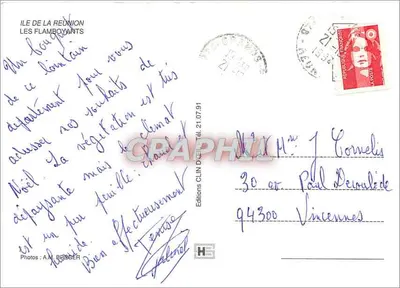 ILE DE LA REUNION
LES FLAMBOYANTS
Un bouquet
de ce lointain
département pour vous
adresser nos souhaits de
Noël. La végétation est très
dépaysante mais le climat
est un peu pénible : chaud et
humide.
Bien affectueusement
Photos : A.M. BERGER
Editions CLIN D' Tél. 21.07.91
CPARAMA
Mr & Mme J Cornelis
30 av Paul Deroulède
94300
Vincennes